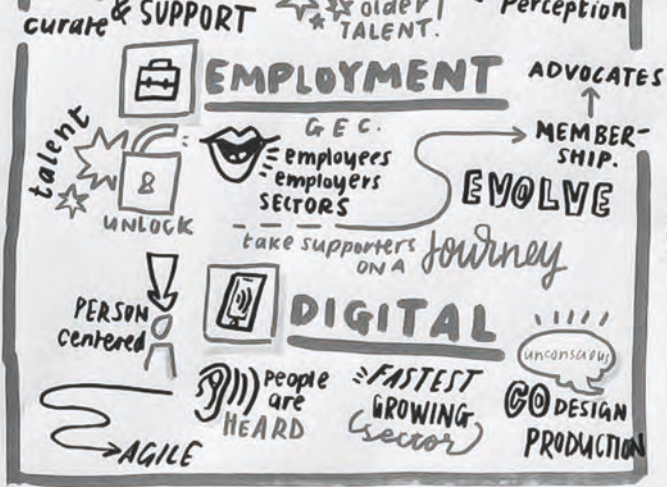 curate & SUPPORT
older
TALENT.
Perception
EMPLOYMENT
ADVOCATES
MEMBER-
SHIP.
talent
UNLOCK
GEC.
employees
employers
SECTORS
EVOLVE
take supporters
ON A Journey
PERSON
centered
DIGITAL
unconscious
People
are
HEARD
FASTEST
GROWING
(sector)
CO DESIGN
PRODUCTION
AGILE